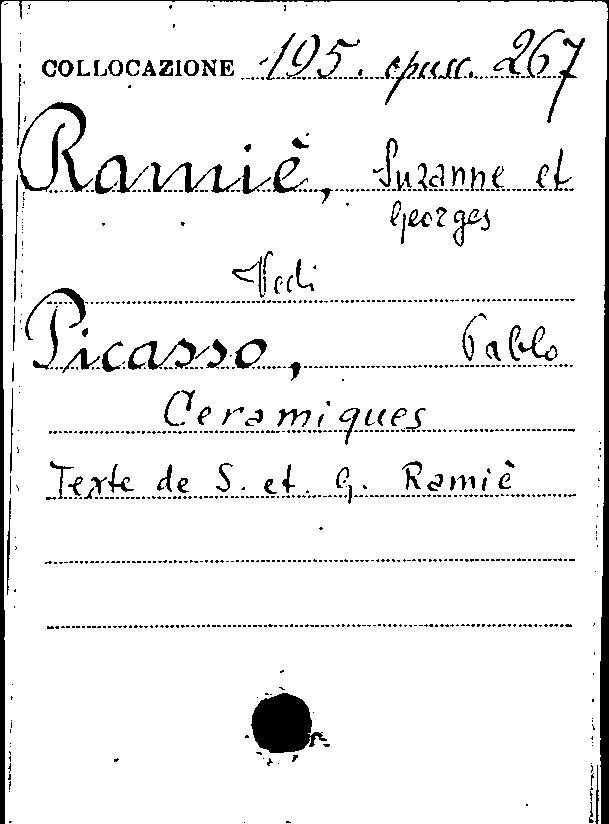 COLLOCAZIONE 195. opusc. 267
Ramiè, Suzanne et
Georges
Vedi
Picasso, Pablo
Ceramiques
Texte de S. et. G. Ramiè